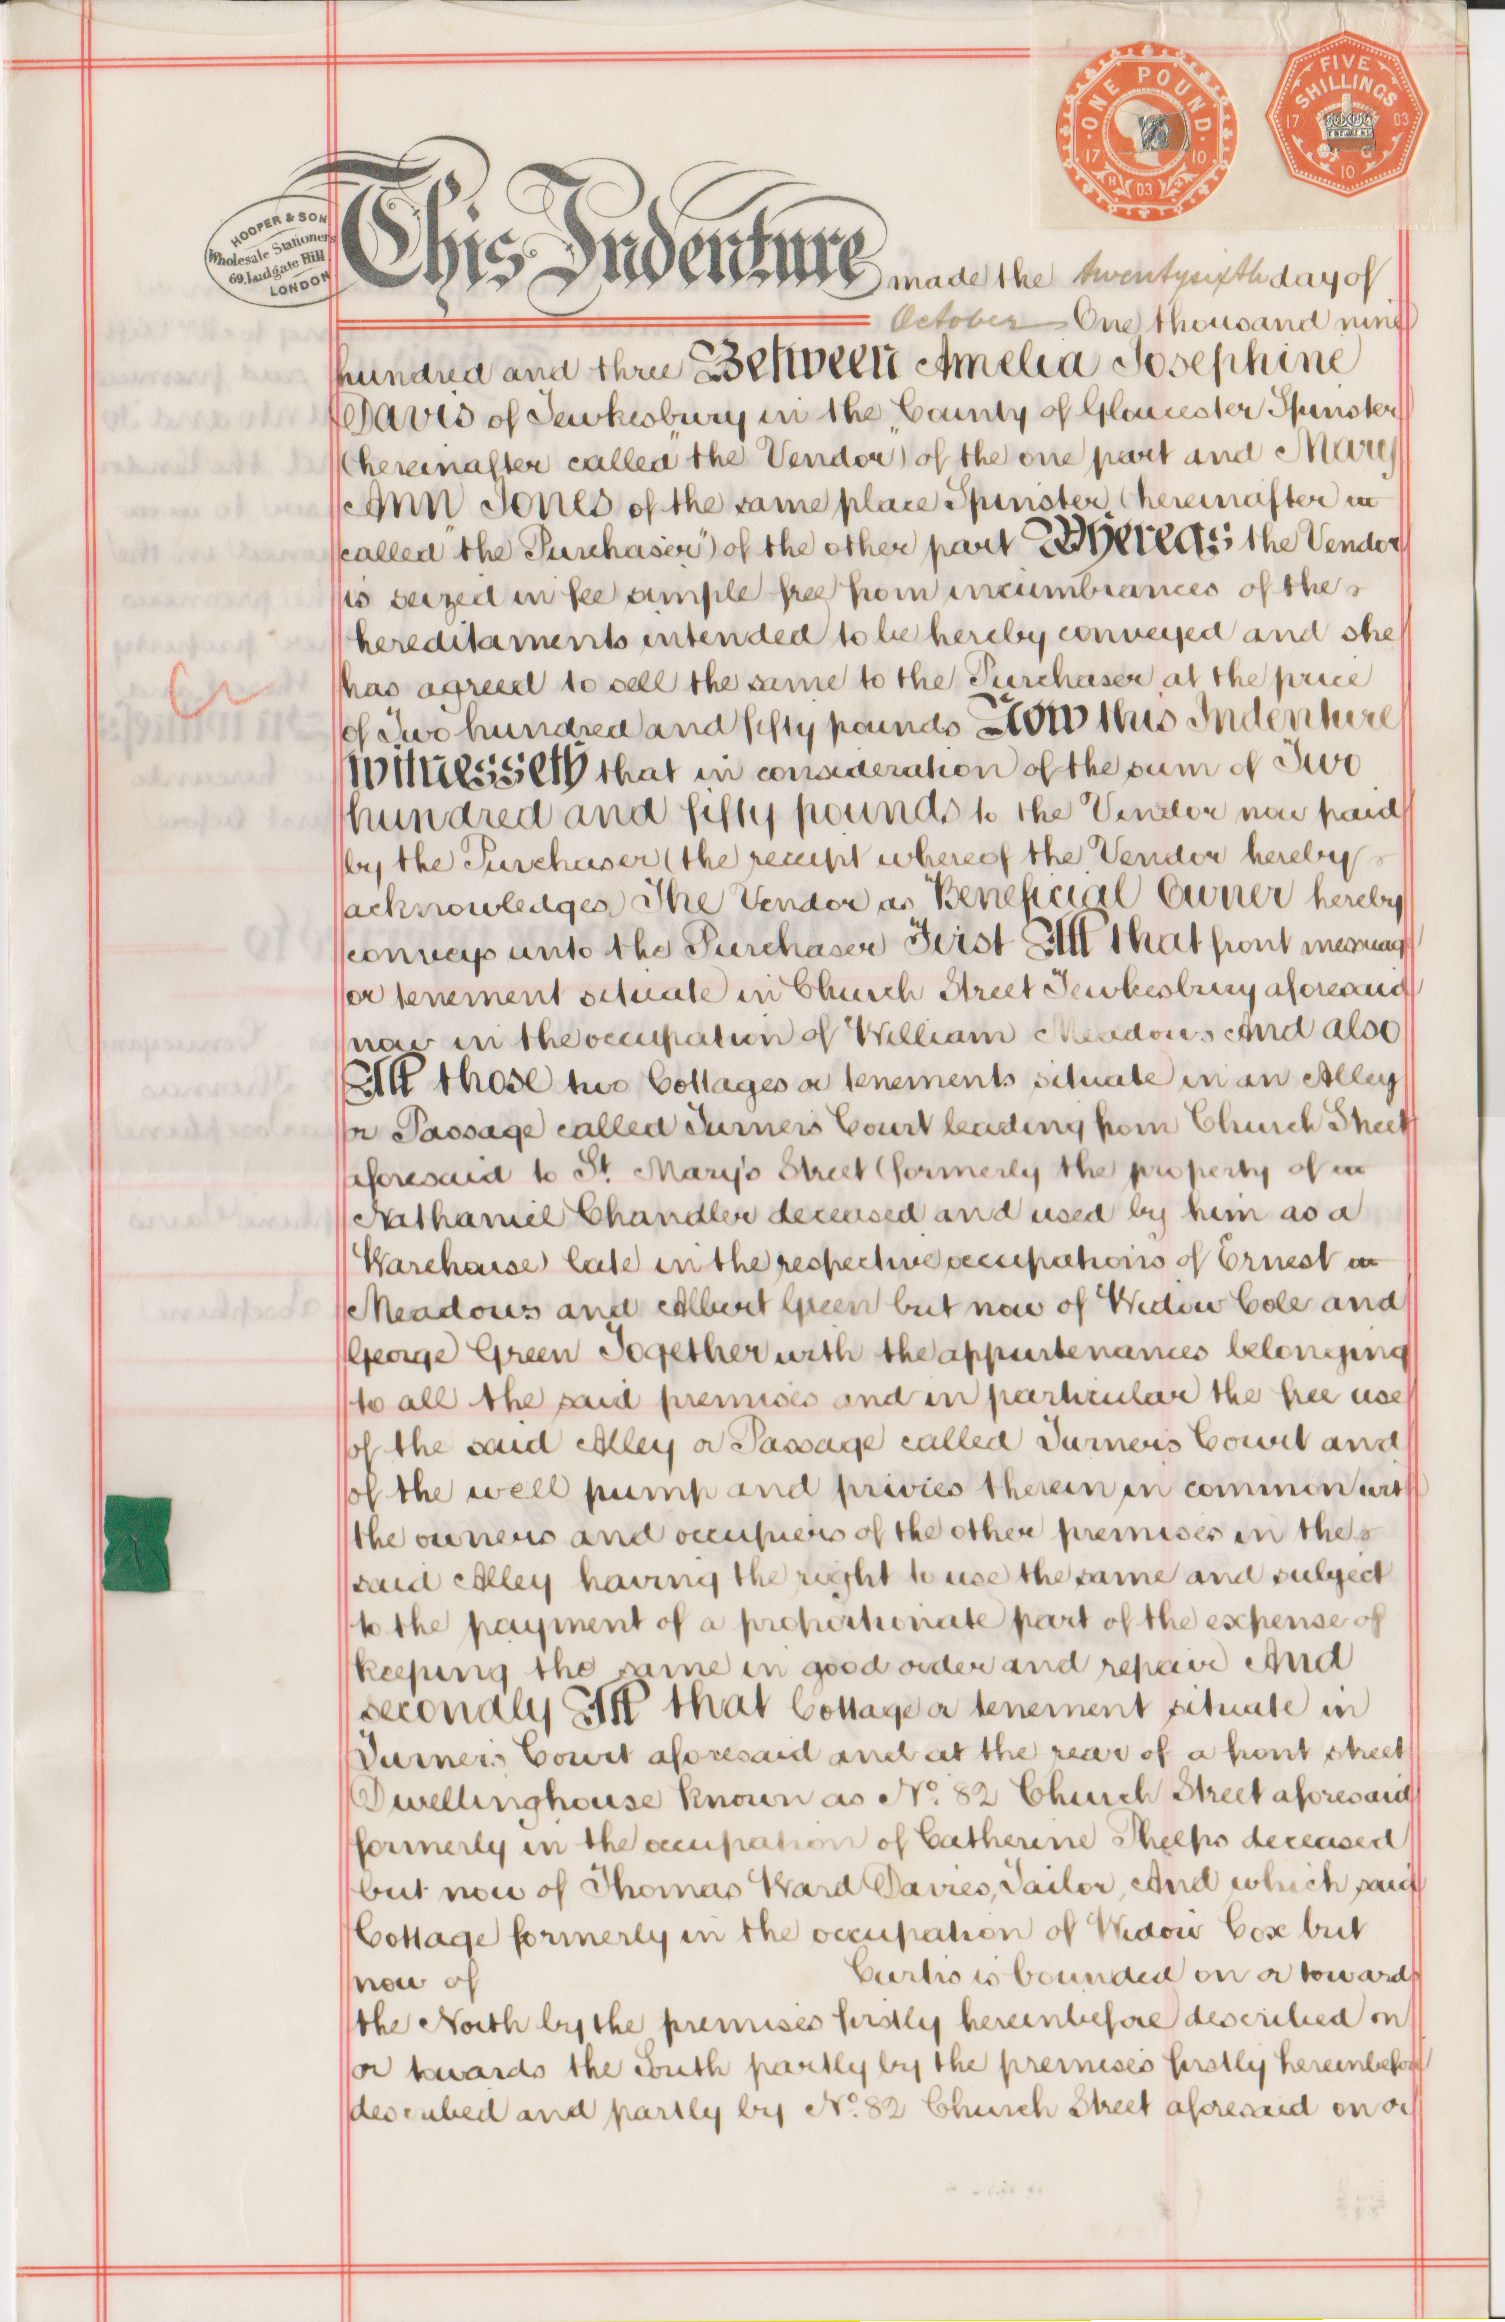 ONE POUND
17 10
03
FIVE SHILLINGS
17 03
10
HOOPER & SON
Wholesale Stationers
69, Ludgate Hill
LONDON
This Indenture made the twentysixth day of
October One thousand nine
hundred and three Between Amelia Josephine
Davis of Tewkesbury in the County of Gloucester Spinster
(hereinafter called "the Vendor") of the one part and Mary
Ann Jones of the same place Spinster (hereinafter
called "the Purchaser") of the other part Whereas the Vendor
is seized in fee simple free from incumbrances of the
hereditaments intended to be hereby conveyed and she
has agreed to sell the same to the Purchaser at the price
of Two hundred and fifty pounds Now this Indenture
witnesseth that in consideration of the sum of Two
hundred and fifty pounds to the Vendor now paid
by the Purchaser (the receipt whereof the Vendor hereby
acknowledges) The Vendor as Beneficial Owner hereby
conveys unto the Purchaser First All that front messuage
or tenement situate in Church Street Tewkesbury aforesaid
now in the occupation of William Meadows And also
All those two Cottages or tenements situate in an Alley
or Passage called Turners Court leading from Church Street
aforesaid to St. Mary's Street (formerly the property of
Nathaniel Chandler deceased and used by him as a
Warehouse) late in the respective occupations of Ernest
Meadows and Albert Green but now of Widow Cole and
George Green Together with the appurtenances belonging
to all the said premises and in particular the free use
of the said Alley or Passage called Turners Court and
of the well pump and privies therein in common with
the owners and occupiers of the other premises in the
said Alley having the right to use the same and subject
to the payment of a proportionate part of the expense of
keeping the same in good order and repair And
secondly All that Cottage or tenement situate in
Turners Court aforesaid and at the rear of a front street
Dwellinghouse known as No. 82 Church Street aforesaid
formerly in the occupation of Catherine Phelps deceased
but now of Thomas Ward Davies, Tailor, And which said
Cottage formerly in the occupation of Widow Cox but
now of Curtis is bounded on or towards
the North by the premises firstly hereinbefore described on
or towards the South partly by the premises firstly hereinbefore
described and partly by No. 82 Church Street aforesaid on or